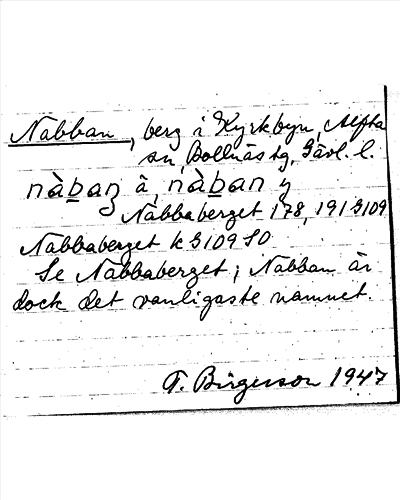 Nabban, berg i Kyrkbyn, Alfta
sn, Bollnäs tg, Gävl. l.
nàban ä, nàban y
Nabbaberget 178, 191 G109
Nabbaberget k G109 SO
Se Nabbaberget; Nabban är
dock det vanligaste namnet.
F. Birgerson 1947